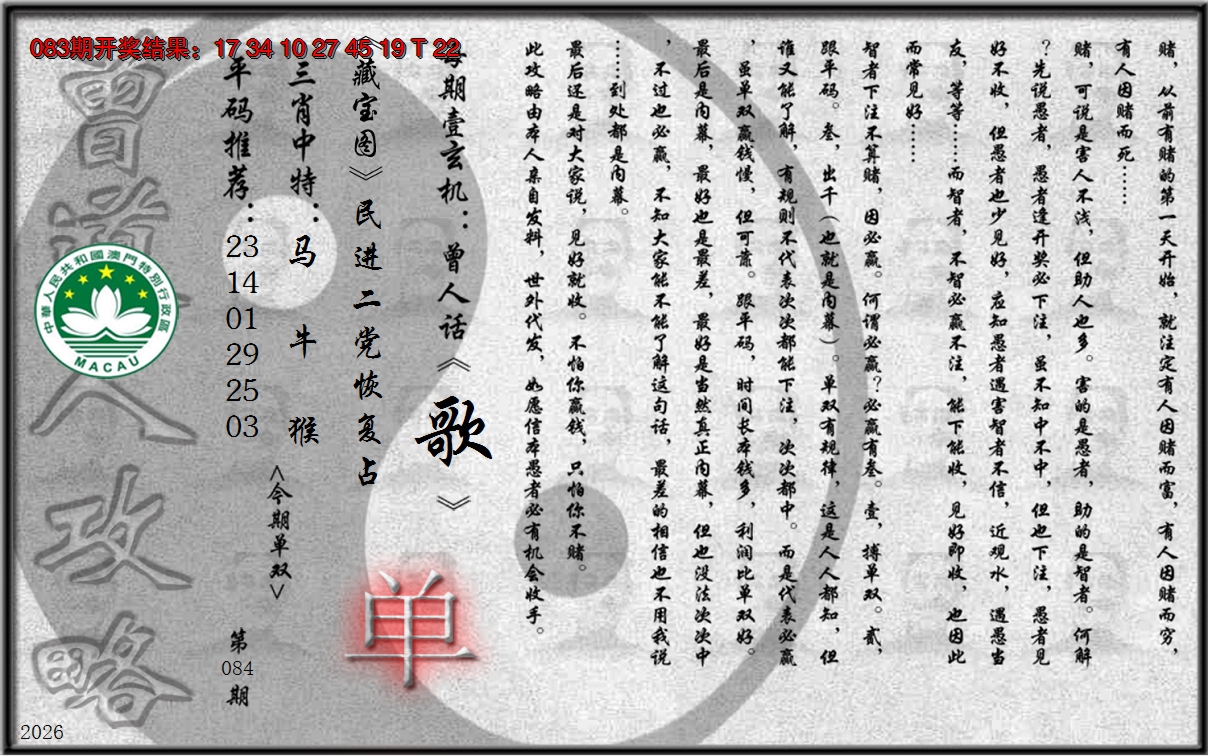 083期开奖结果：17 34 10 27 45 19 T 22
赌，从前有赌的第一天开始，就注定有人因赌而富，有人因赌而穷，
有人因赌而死……
赌，可说是害人不浅，但助人也多。害的是愚者，助的是智者。何解
？先说愚者，愚者逢开奖必下注，虽不知中不中，但也下注，愚者见
好不收，但愚者也少见好，应知愚者遇害智者不信，近观水，遇愚当
友，等等……而智者，不智必赢不注，能下能收，见好即收，也因此
而常见好……
智者下注不算赌，因必赢。何谓必赢？必赢有叁。壹，搏单双。贰，
跟平码。叁，出千（也就是内幕）。单双有规律，这是人人都知，但
谁又能了解，有规则不代表次次都能下注，次次都中。而是代表必赢
，虽单双赢钱慢，但可靠。跟平码，时间长本钱多，利润比单双好。
最后是内幕，最好也是最差，最好是当然真正内幕，但也没法次次中
，不过也必赢，不知大家能不能了解这句话，最差的相信也不用我说
……到处都是内幕。
最后还是对大家说，见好就收。不怕你赢钱，只怕你不赌。
此攻略由本人亲自发料，世外代发，如愿信本愚者必有机会收手。
每期壹玄机：曾人话《歌》
《藏宝图》民进二党恢复占
单
三肖中特：马 牛 猴
<今期单双>
平码推荐：23 14 01 29 25 03
第084期
曾道人攻略
中華人民共和國澳門特別行政區
MACAU
2026